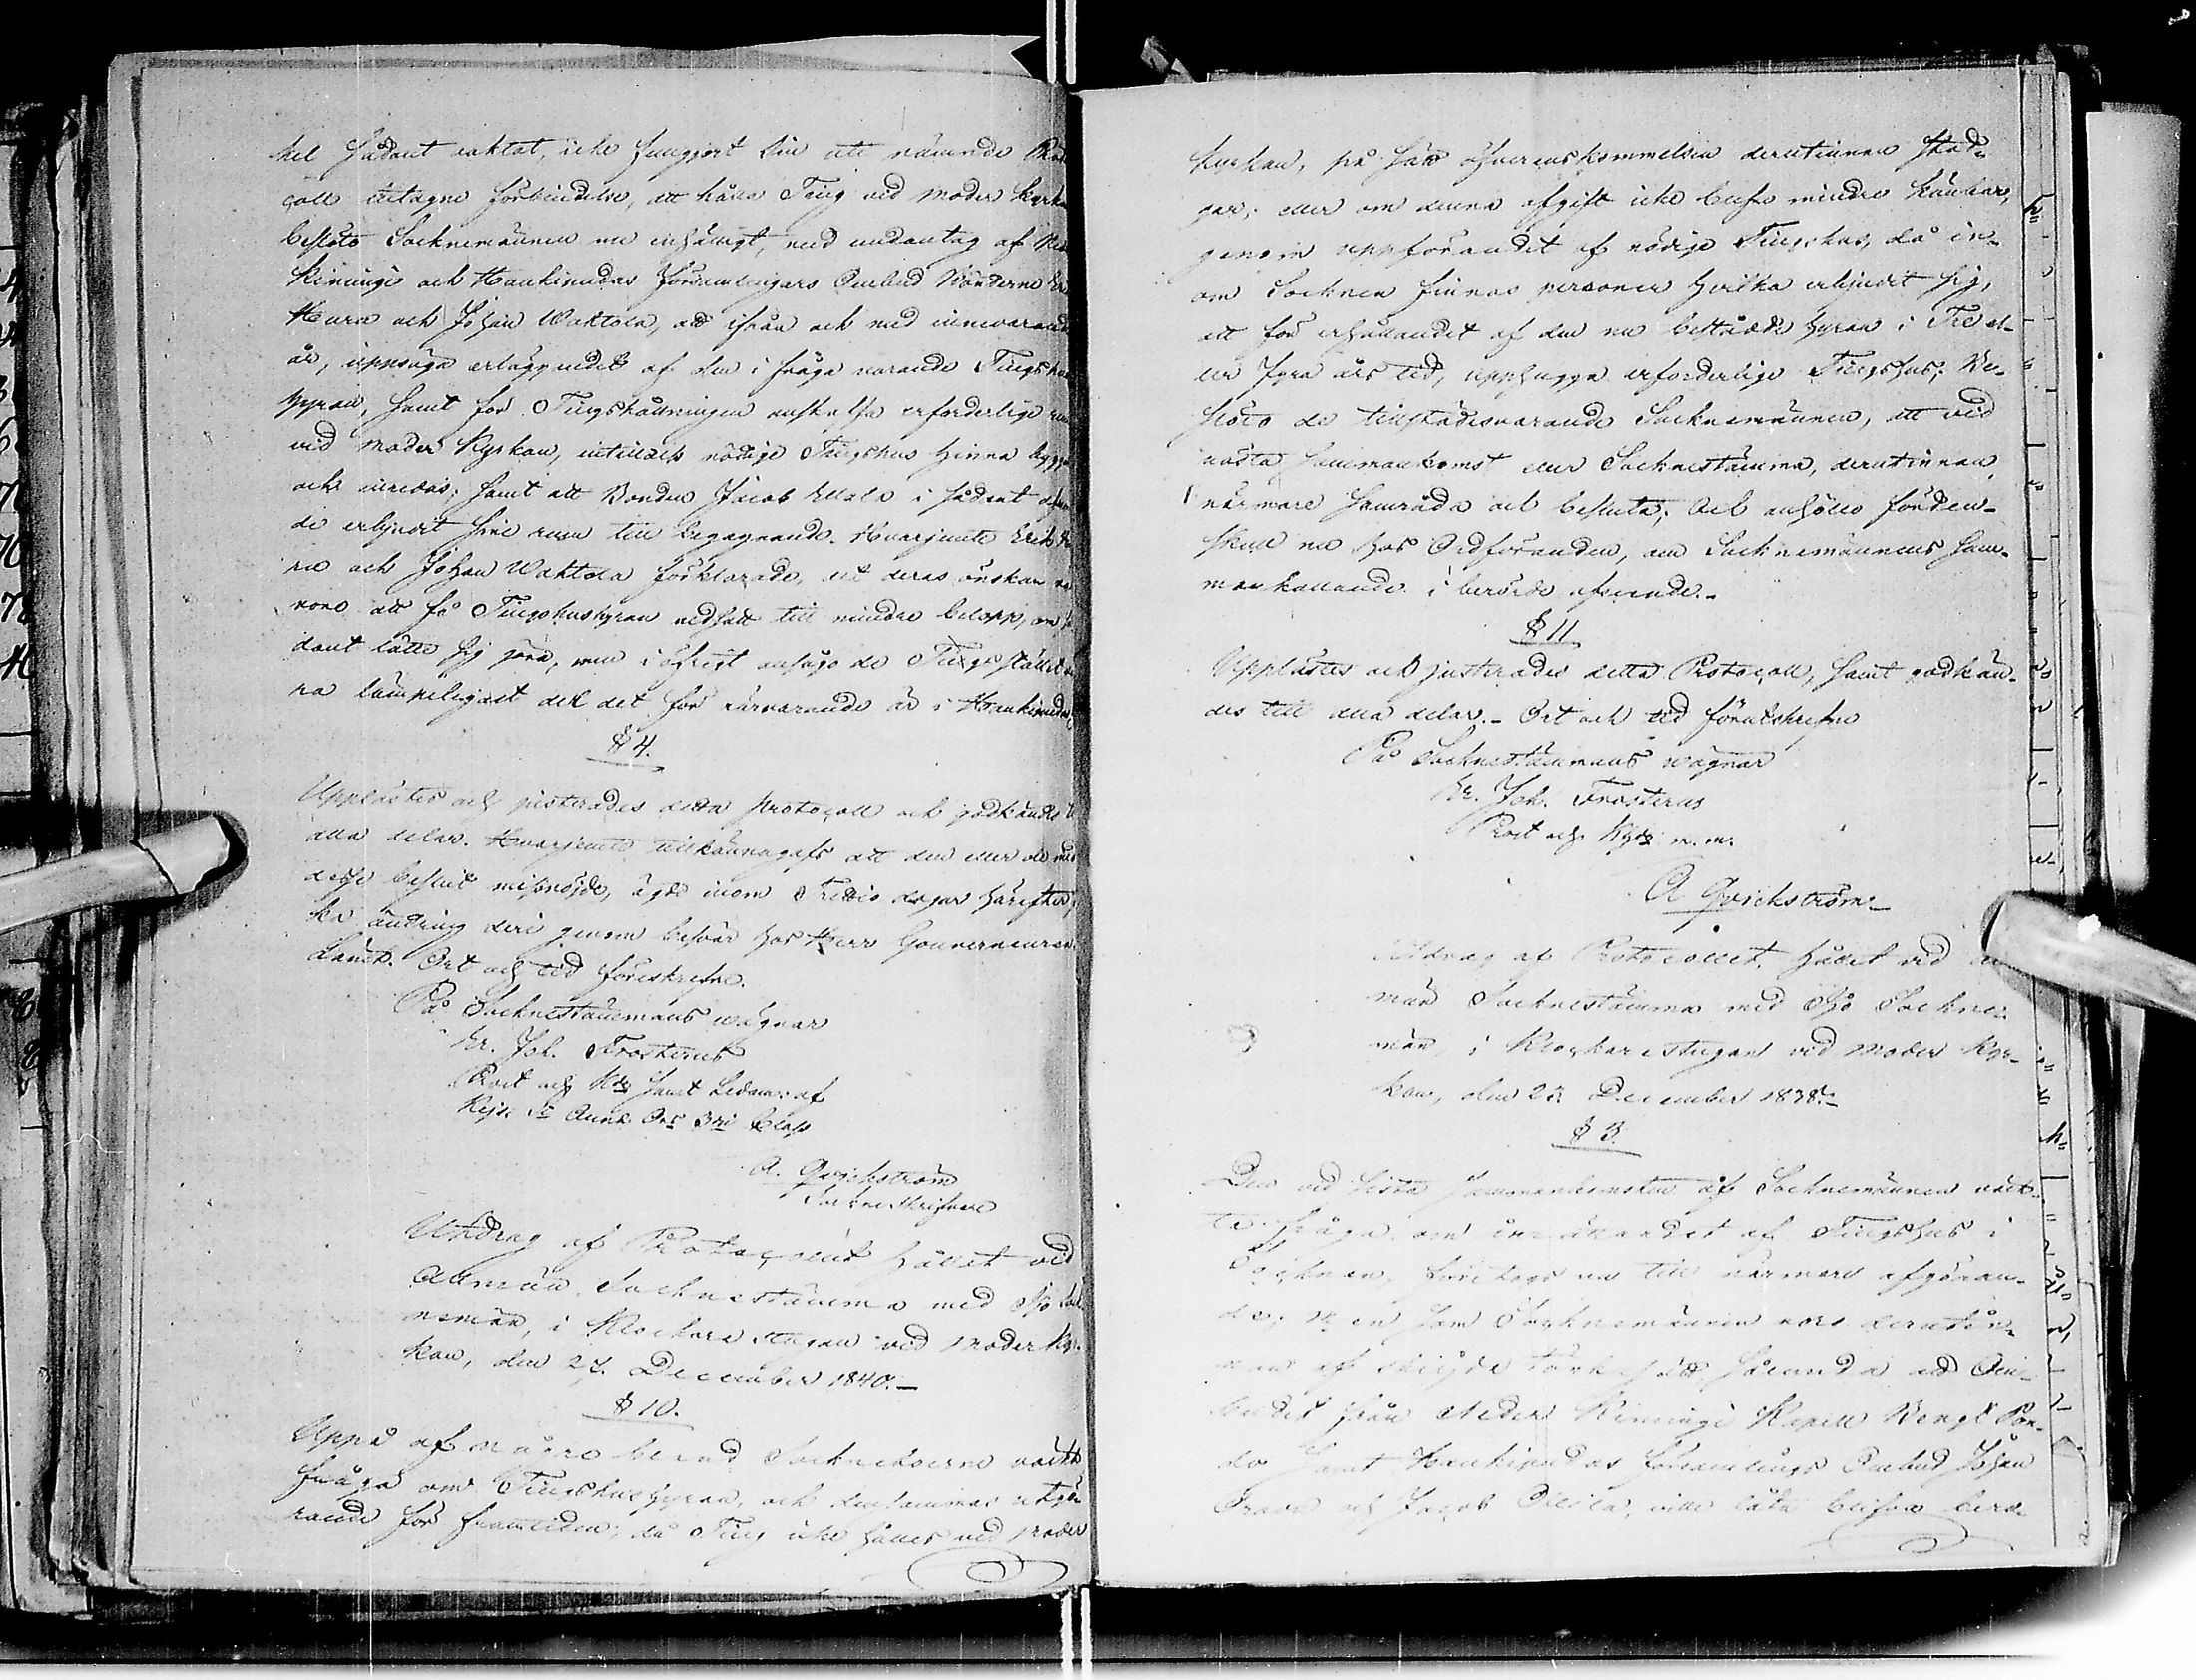 kel sådant iaktat, icke fungjort sin uti nämnde Proto
coll åtagne förbindelse, att hålla Ting vid Moder Kyrkan
beslöto Socknemännen nu enhälligt, med undantag af Neder
Kiminge och Haukipudas församlingars Ombud Bönderne Er
Kura och Johan Waktola, att ifrån och med innevarande
år, uppsäga erläggandet af den i fråga varande Tingshus
hyran, samt för Tingshållningen anskaffa erforderlige rum
vid Moder Kyrkan, intilldess nödige Tingshus hinna bygga
och inredas; samt att Bonden Jacob i sådant afse
de erbjudit sine rum till begagnande. Hvarjemte Erik Ku
ra och Johan Waktola förklarade, att deras önskan nu
vore att få Tingshushyran nedsatt till mindre belopp, om så
dant låtte sig göra, men i öfrigt ansågo de Tingsstället va
ra lämpeligast der det för närvarande är i Haukipudas,
§ 4.
Upplästes och justerades detta Protocoll och godkändes i
alla delar. Hvarjemte tillkännagafs att den eller de med
detta beslut missnöjde, ägde inom Tretio dagar härefter, sö
ka ändring deri genom besvär hos Herr Gouverneuren i
Länet. Ort och tid föreskrefne.
På Socknestämmans wägnar
Er. Joh. Frosterus
Prost och Kh samt Ledam: af
Kejs. St Annæ Ors 3ie Class
A. Qvickström
Sockne Skrifvare
Utdrag af Protocollet hållet vid
allmän Socknestämma med Ijo Sock
nemän, i Klockare stugan vid Moder Kyr-
kan, den 27. December 1840.
§ 10.
Uppå af nårre bland Sockneboerne väckt
fråga om Tingshushyran, och densammas utgö-
rande för framtiden, då Ting icke hålles vid Moder
Kyrkan, på sätt öfverenskommelsen derutinnan stad-
gar; eller om denna afgift icke blefve mindre kännbar,
genom uppförandet af nödige Tingshus, då in-
om Socknen finnas personer hvilka erbjudit sig,
att för erhållandet af den nu bestådde hyran i Tre el-
ler Fyra års tid, upphugga erforderlige Tingshus; Be-
slöto de tillstädesvarande Socknemännen, att vid
nästa sammankomst eller Socknestämma, derutinnan
närmare samråda och besluta; Och anhöllo förden-
skull nu hos Ordföranden, om Socknemännens sam-
mankallande i berörde afseende.
§ 11
Upplästes och justerades detta Protocoll, samt godkän-
des till alla delar. Ort och tid förutskrefne
På Socknestämmans wägnar
Er. Joh. Frosterus
Prost och Kyrkh m. m.
A Qvickström
Utdrag af Protocollet, hållet vid all
män Socknestämma med Ijo Sockne-
män i Klockarestugan vid Moder Kyr-
kan, den 23. December 1838.
§ 3.
Den vid sista sammankomsten af Socknemännen väck-
te fråga om inrättandet af Tingshus i
Socknen, företogs nu till närmare afgöran-
de; Men som Socknemännen voro derutin-
nan af skiljde tänkesätt sålunda att Om-
budet från Neder Kiminge Kapell Bengt Pon-
do samt Haukipudas församlings Ombud Johan
och Jacob ville låta